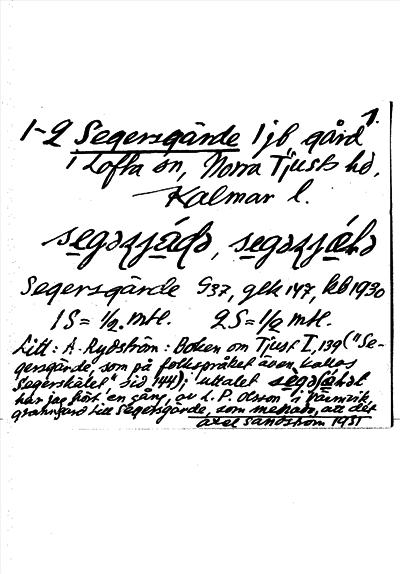 1.
1-2 Segersgärde 1 jb gård
i Lofta sn, Norra Tjusts hd,
Kalmar l.
Segersgärde G37, gek 147, kb 1930
1S = 1/2 mtl. 2S = 1/2 mtl.
Litt: A. Rydström: Boken om Tjust I, 139 ("Se-
gersgärde, som på folkspråket även kallas
Segerskälet" sid 144); uttalet
har jag hört en gång, av L. P. Olsson i
granngård till Segersgärde, som menade, att det
Axel Sandström 1931